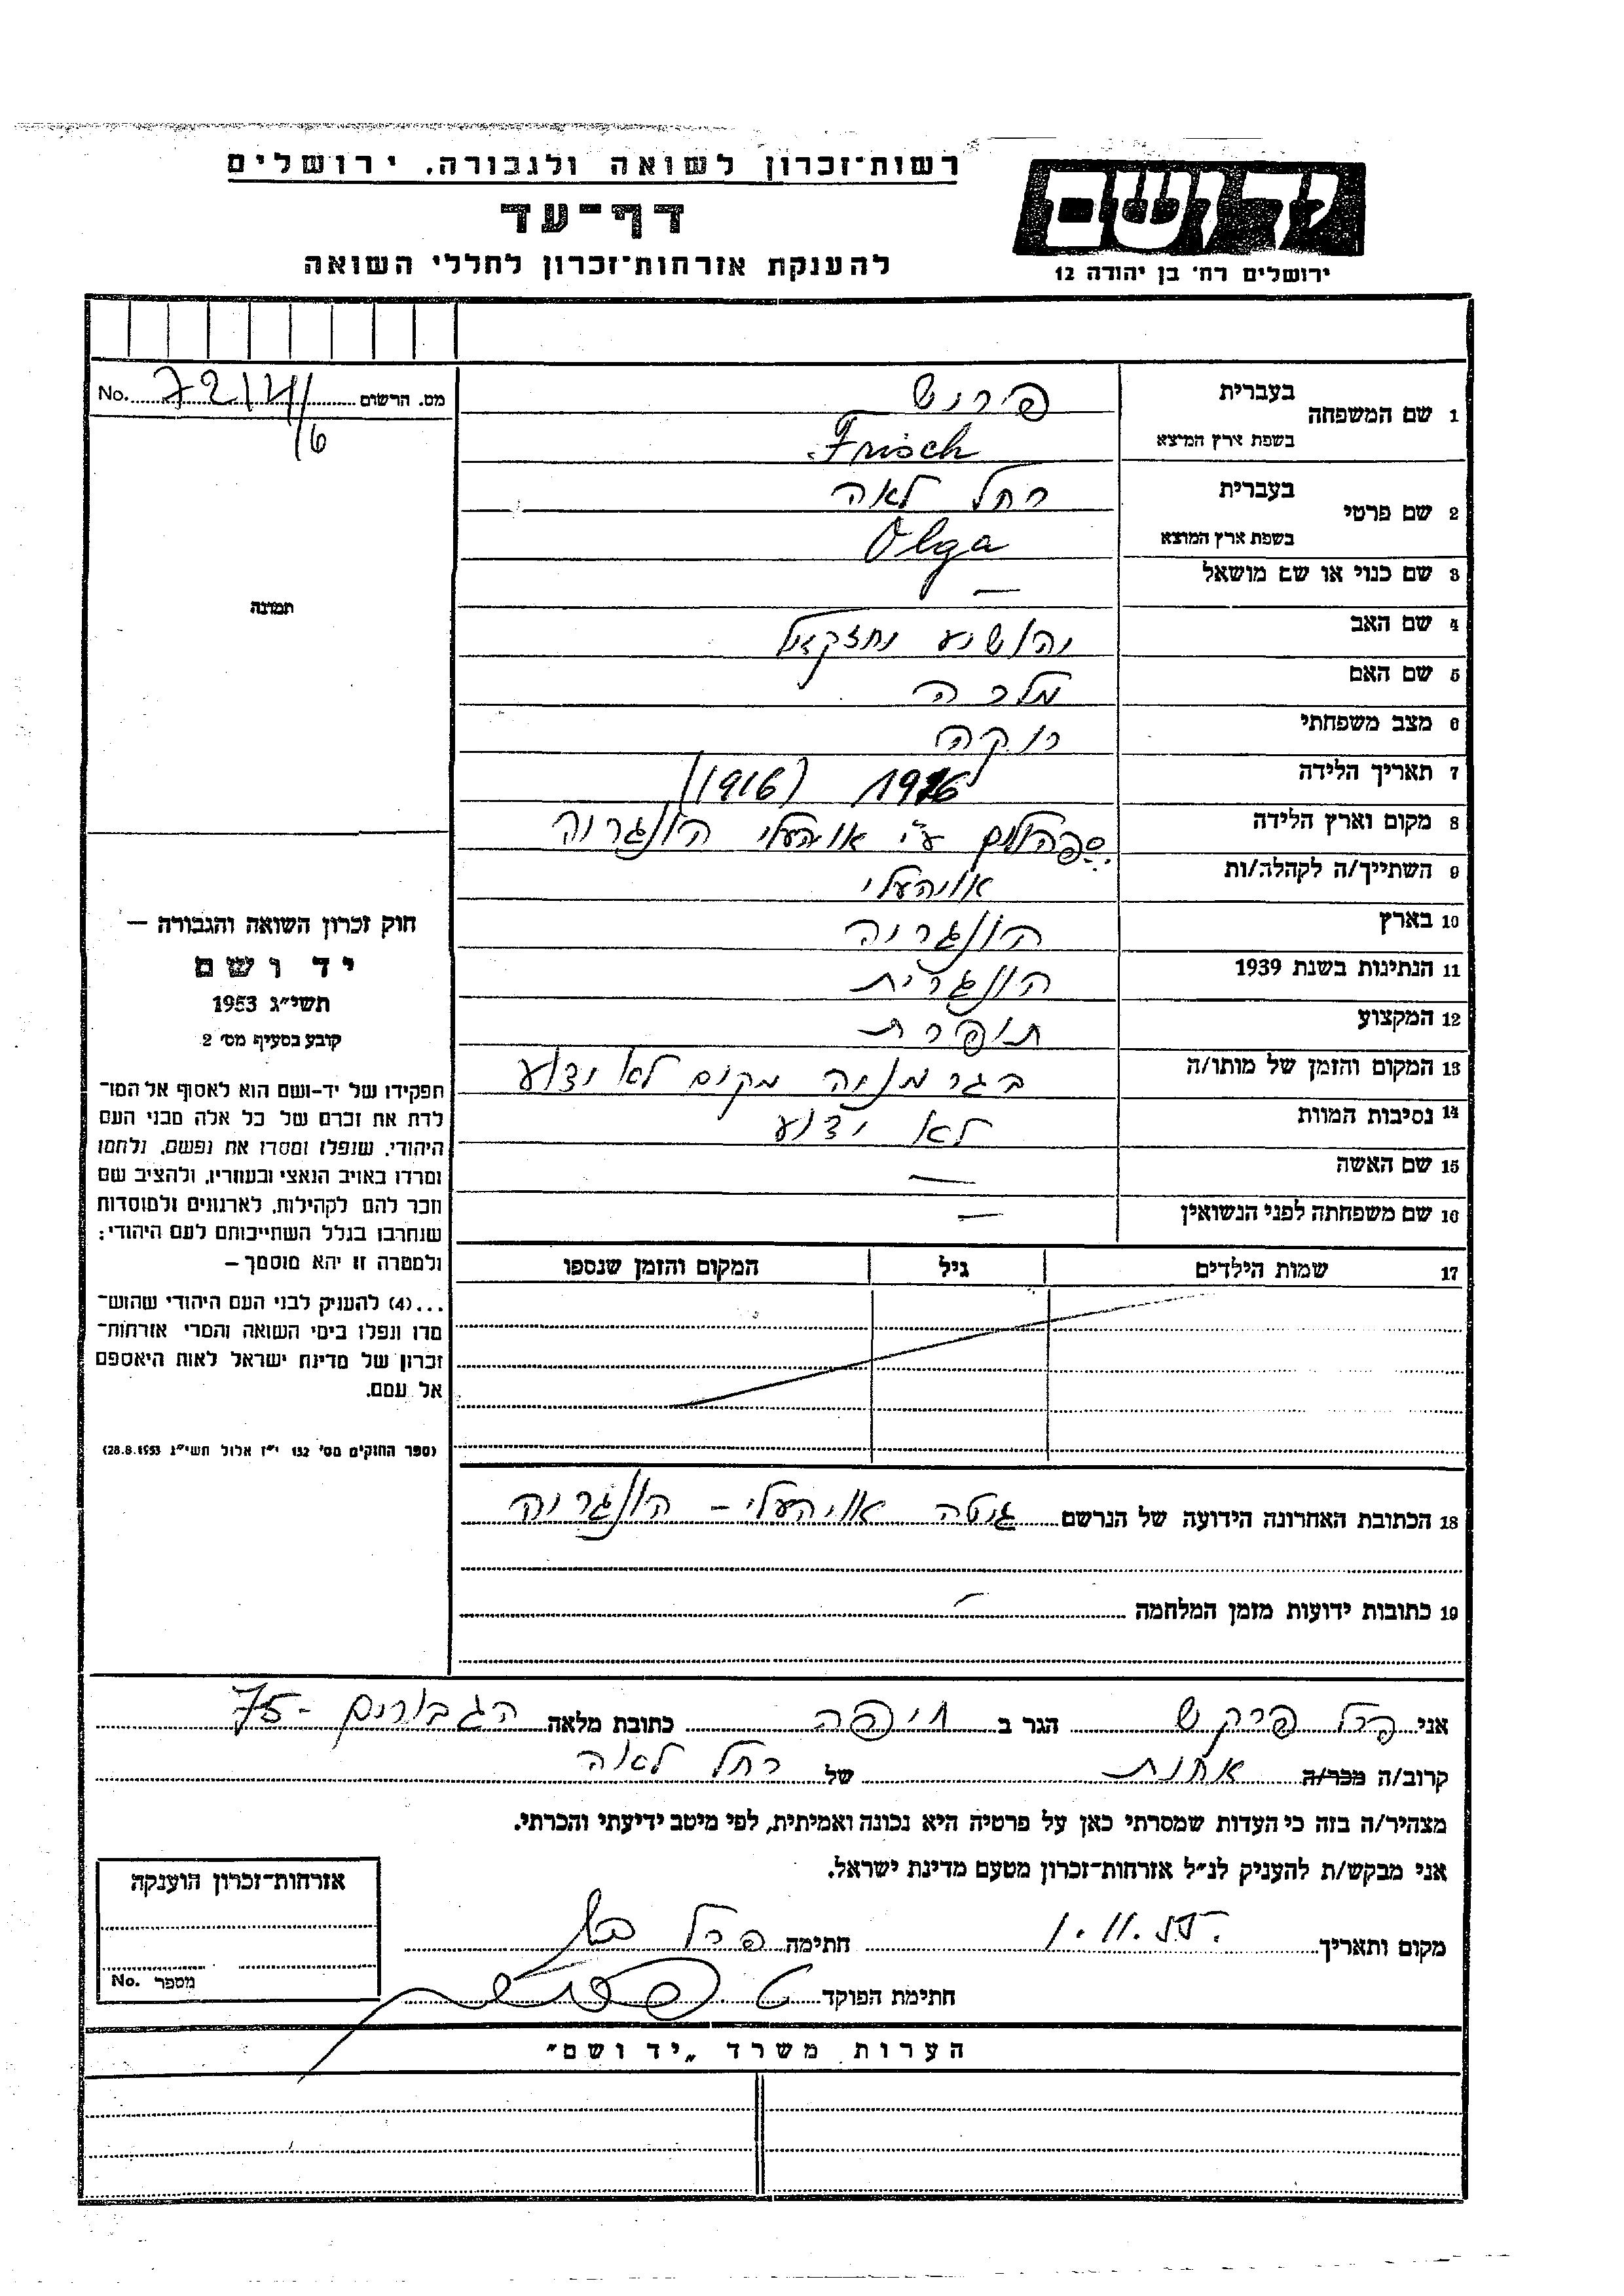 רשות־זכרון לשואה ולגבורה. ירושלים
דף־עד
להענקת אזרחות־זכרון לחללי השואה
ידושם
ירושלים רח' בן יהודה 12
מס. הרשום No.
תמונה
1 שם המשפחה בעברית פריש
בשפת ארץ המוצא Frisch
2 שם פרטי בעברית רחל לאה
בשפת ארץ המוצא Olga
3 שם כנוי או שם מושאל —
4 שם האב יהושע יחזקאל
5 שם האם מלכה
6 מצב משפחתי רוקה
7 תאריך הלידה 1916 (1916)
8 מקום וארץ הלידה ע"י אויהעלי הונגריה
9 השתייך/ה לקהלה/ות אויהעלי
10 בארץ הונגריה
11 הנתינות בשנת 1939 הונגרית
12 המקצוע תופרת
13 המקום והזמן של מותו/ה בגרמניה מקום לא ידוע
14 נסיבות המוות לא ידוע
15 שם האשה —
16 שם משפחתה לפני הנשואין —
17 שמות הילדים גיל המקום והזמן שנספו
חוק זכרון השואה והגבורה —
יד ושם
תשי״ג 1953
קובע בסעיף מס' 2
תפקידו של יד-ושם הוא לאסוף אל המו־
לדת את זכרם של כל אלה מבני העם
היהודי, שנפלו ומסרו את נפשם, נלחמו
ומרדו באויב הנאצי ובעוזריו, ולהציב שם
וזכר להם לקהילות, לארגונים ולמוסדות
שנחרבו בגלל השתייכותם לעם היהודי;
ולמטרה זו יהא מוסמך —
...(4) להעניק לבני העם היהודי שהוש־
מדו ונפלו בימי השואה והמרי אזרחות־
זכרון של מדינת ישראל לאות היאספם
אל עמם.
(ספר החוקים מס' 132 י״ז אלול תשי״ג 28.8.1953)
18 הכתובת האחרונה הידועה של הנרשם אויהעלי – הונגריה
19 כתובות ידועות מזמן המלחמה —
אני פרל פרקש הגר ב חיפה כתובת מלאה הגבורים - 75
קרוב/ה מכר/ה אחות של רחל לאה
מצהיר/ה בזה כי העדות שמסרתי כאן על פרטיה היא נכונה ואמיתית, לפי מיטב ידיעתי והכרתי.
אני מבקש/ת להעניק לנ״ל אזרחות-זכרון מטעם מדינת ישראל.
מקום ותאריך 1.11.55. חתימה פרל
חתימת הפוקד
אזרחות-זכרון הוענקה
מספר No.
הערות משרד „יד ושם״